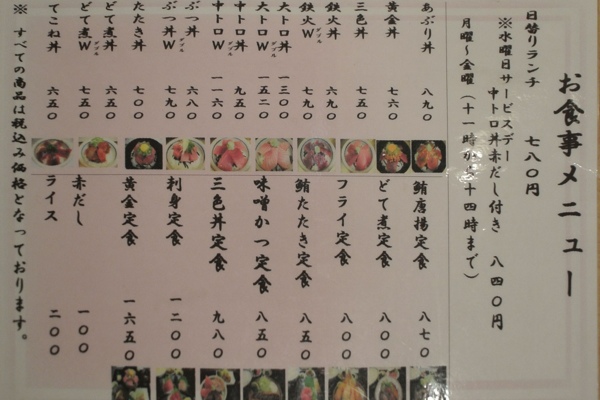 お食事メニュー
日替りランチ 七八〇円
※水曜日サービスデー
中トロ丼赤だし付き 八四〇円
月曜～金曜(十一時から十四時まで)
あぶり丼 八九〇
黄金丼 七六〇
三色丼 七五〇
鉄火丼 六九〇
鉄火W ダブル 七九〇
大トロ丼 一三〇〇
大トロW ダブル 一五二〇
中トロ丼 九五〇
中トロW ダブル 一一六〇
ぶつ丼 六八〇
ぶつ丼W ダブル 七九〇
たたき丼 七〇〇
どて煮丼 六五〇
どて煮W ダブル 七五〇
てこね丼 六五〇
鮪唐揚定食 八七〇
どて煮定食 八〇〇
フライ定食 八〇〇
鮪たたき定食 八五〇
味噌かつ定食 八五〇
三色丼定食 九八〇
刺身定食 一二〇〇
黄金定食 一六五〇
赤だし 一〇〇
ライス 二〇〇
※すべての商品は税込み価格となっております。